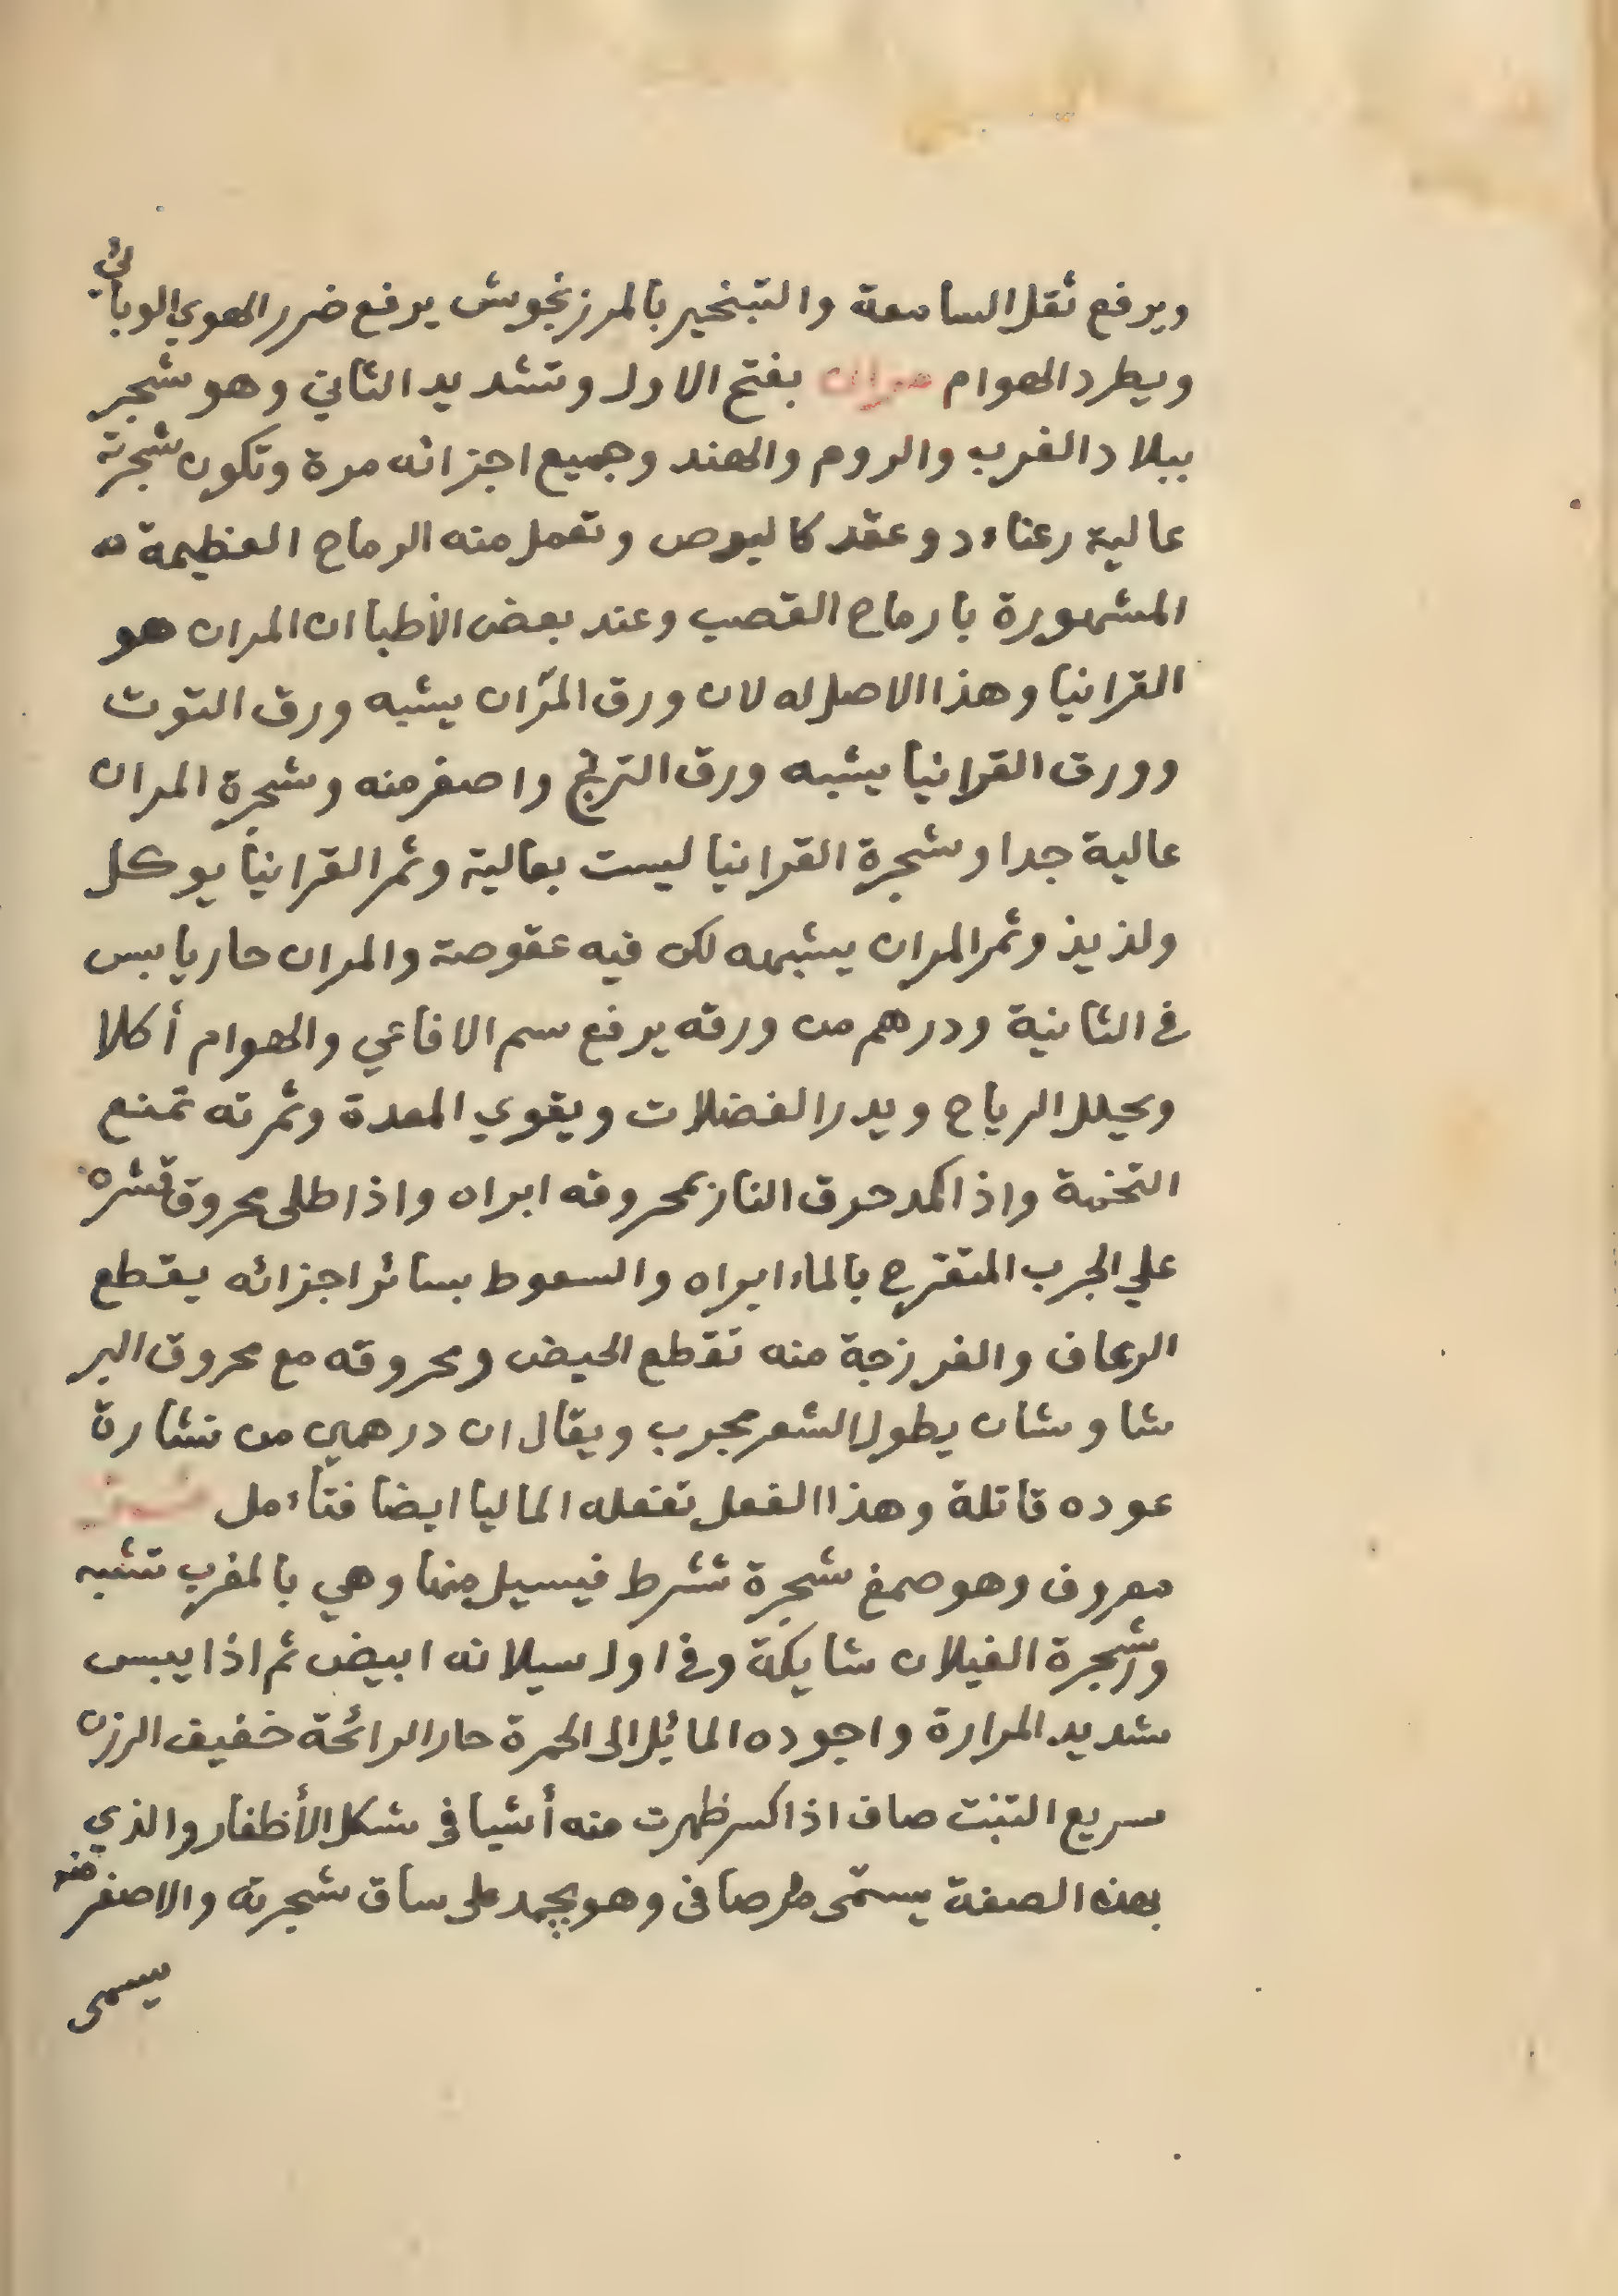 ويرفع ثقل السامعة والتبخير بالمرزنجوش يرفع ضرر الهوي الوبائي
ويطرد الهوام مران بفتح الاول وتشديد الثاني وهو شجر
ببلاد الغرب والروم والهند وجميع اجزائه مرة وتكون شجرته
عالية رعناء ذو عقد كالبوص وتعمل منه الرماح العظيمة
المشهورة بارماح القصب وعند بعض الأطبا ان المران هو
القرانيا وهذا الاصل له لان ورق المرّان يشبه ورق التوت
وورق القرانيا يشبه ورق الترنج واصغر منه وشجرة المران
عالية جدا وشجرة القرانيا ليست بعالية وثمر القرانيا يوكل
ولذيذ وثمر المران يشبهه لكن فيه عفوصة والمران حار يابس
في الثانية ودرهم من ورقه يرفع سم الافاعي والهوام أكلا
ويحلل الرياح ويدر الفضلات ويقوي المعدة وثمرته تمنع
التخمة واذا كمد حرق النار بمحروقه ابراه واذا طلى محروق قشره
علي الجرب المتقرح بالماء ابراه والسعوط بسائر اجزائه يقطع
الرعاف والفرزجة منه تقطع الحيض ومحروقه مع محروق البر
شاوشان يطول الشعر مجرب ويقال ان درهمي من نشارة
عوده قاتلة وهذا الفعل تفعله الماليا ايضا فتاءمل
معروف وهو صمغ شجرة تشرط فيسيل منها وهي بالمغرب تشبه
وشجرة الغيلان شايكة وفي اول سيلانه ابيض ثم اذا يبس
شديد المرارة واجوده المائل الى الحمرة حار الرائحة خفيف الرزن
سريع التفتت صاف اذا كسر ظهرت منه أشيا في شكل الأظفار والذي
بهذه الصفة يسمّى مر صافى وهو يجمد على ساق شجرته والاصفر منه
يسمى